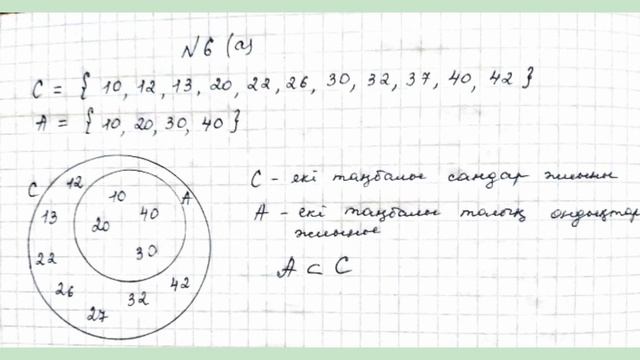 №6 (а)
C = { 10, 12, 13, 20, 22, 26, 30, 32, 37, 40, 42 }
A = { 10, 20, 30, 40 }
C - екі таңбалы сандар жиыны
A - екі таңбалы толық ондықтар
жиыны
A ⊂ C
C 12
10 A
13 20 40
22 30
26 27 32 42